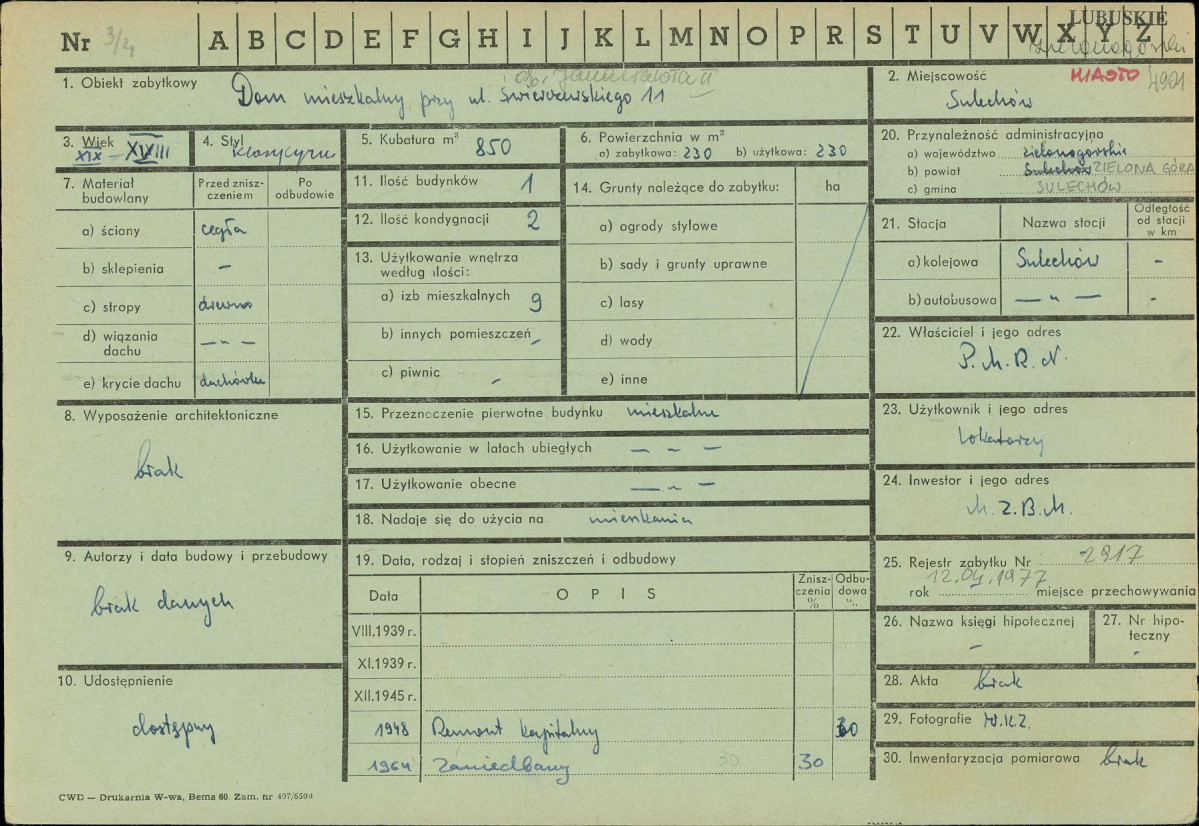 Nr 3/4 A B C D E F G H I J K L M N O P R S T U V W X Y Z
LUBUSKIE
zielonogórski
1. Obiekt zabytkowy Dom mieszkalny przy ul. Świerczewskiego 11
ob. Jana Pawła II
2. Miejscowość MIASTO 4901
Sulechów
3. Wiek XIX – XVIII
4. Styl klasycyzm
5. Kubatura m³ 850
6. Powierzchnia w m²
a) zabytkowa: 230 b) użytkowa: 230
20. Przynależność administracyjna
a) województwo zielonogórskie
b) powiat Sulechów ZIELONA GÓRA
c) gmina SULECHÓW
7. Materiał budowlany
Przed zniszczeniem
Po odbudowie
a) ściany cegła
b) sklepienia –
c) stropy drewno
d) wiązania dachu — „ —
e) krycie dachu dachówka
11. Ilość budynków 1
12. Ilość kondygnacji 2
13. Użytkowanie wnętrza według ilości:
a) izb mieszkalnych 9
b) innych pomieszczeń –
c) piwnic –
14. Grunty należące do zabytku: ha
a) ogrody stylowe
b) sady i grunty uprawne
c) lasy
d) wody
e) inne
21. Stacja Nazwa stacji Odległość od stacji w km
a) kolejowa Sulechów -
b) autobusowa — „ — -
22. Właściciel i jego adres
P.M.R.N.
8. Wyposażenie architektoniczne
brak
15. Przeznaczenie pierwotne budynku mieszkalne
16. Użytkowanie w latach ubiegłych — „ —
17. Użytkowanie obecne — „ —
18. Nadaje się do użycia na mieszkania
23. Użytkownik i jego adres
lokatorzy
24. Inwestor i jego adres
M.Z.B.M.
9. Autorzy i data budowy i przebudowy
brak danych
10. Udostępnienie
dostępny
19. Data, rodzaj i stopień zniszczeń i odbudowy
Data OPIS Zniszczenia % Odbudowa %
VIII.1939 r.
XI.1939 r.
XII.1945 r.
1948 Remont kapitalny 30
1964 Zaniedbany 30 30
25. Rejestr zabytku Nr 2917
rok 12.04.1977 miejsce przechowywania
26. Nazwa księgi hipotecznej –
27. Nr hipoteczny -
28. Akta brak
29. Fotografie W.K.Z.
30. Inwentaryzacja pomiarowa brak
CWD — Drukarnia W-wa, Bema 60. Zam. nr 497/6500